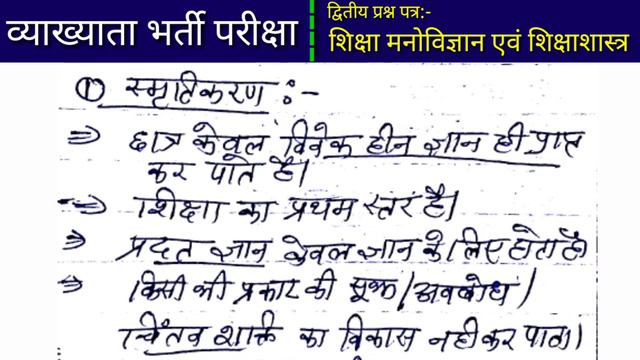 व्याख्याता भर्ती परीक्षा
द्वितीय प्रश्न पत्र:-
शिक्षा मनोविज्ञान एवं शिक्षाशास्त्र
① स्मृतिकरण :-
⇒ छात्र केवल विवेक हीन ज्ञान ही प्राप्त
कर पाते है।
⇒ शिक्षा का प्रथम स्तर है।
⇒ प्रदत ज्ञान केवल ज्ञान के लिए होता है।
⇒ किसी भी प्रकार की सूझ / अवबोध /
चिंतन शक्ति का विकास नही कर पाता।